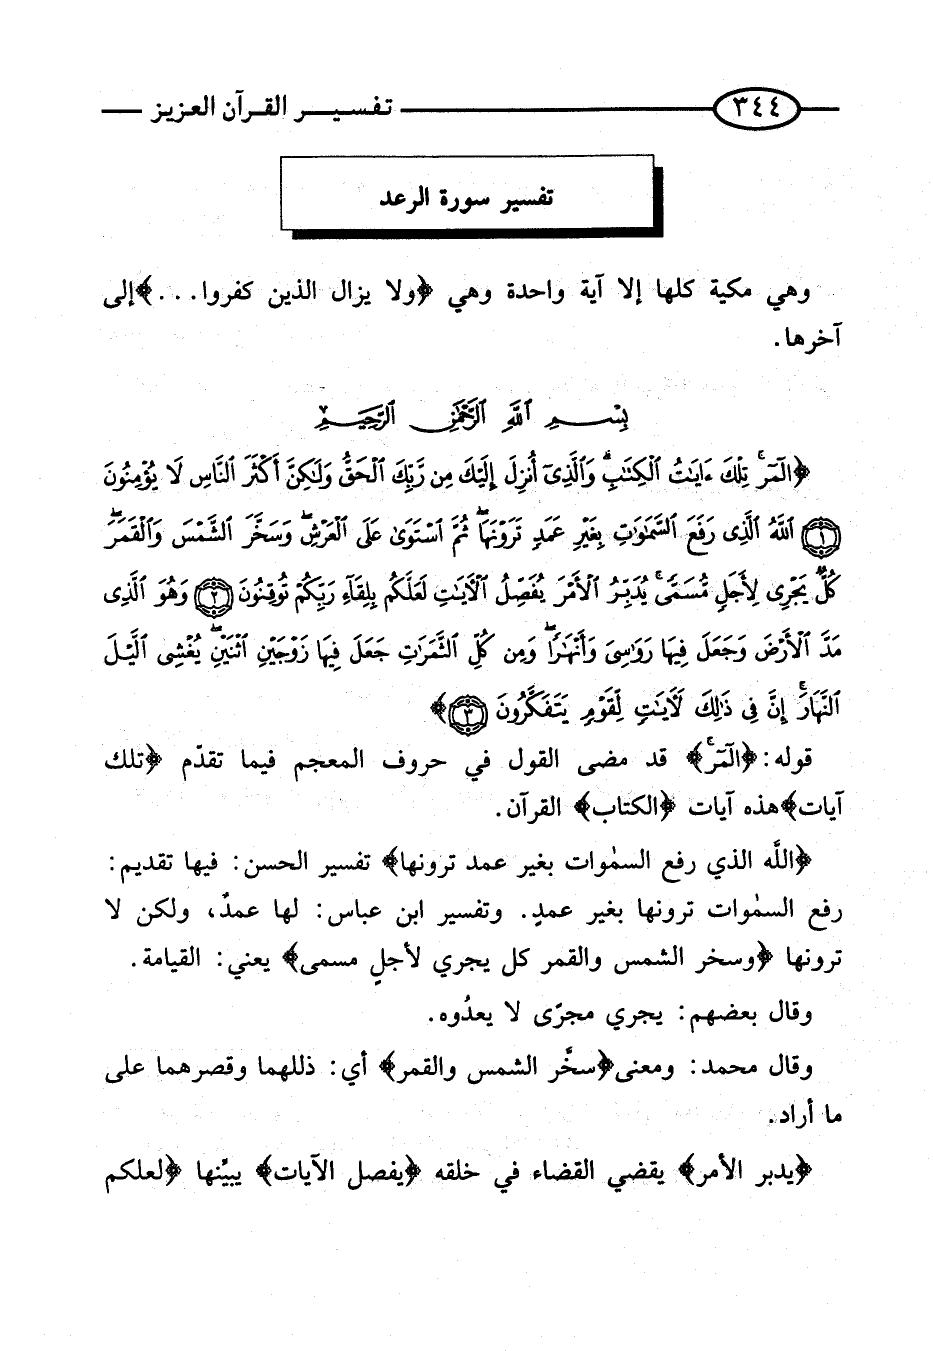 ٣٤٤ تفسير القرآن العزيز
تفسير سورة الرعد
وهي مكية كلها إلا آية واحدة وهي ﴿ولا يزال الذين كفروا...﴾إلى
آخرها.
بِسْمِ اللَّهِ الرَّحْمَٰنِ الرَّحِيمِ
﴿الٓمٓرۚ تِلْكَ ءَايَٰتُ ٱلْكِتَٰبِۗ وَٱلَّذِىٓ أُنزِلَ إِلَيْكَ مِن رَّبِّكَ ٱلْحَقُّ وَلَٰكِنَّ أَكْثَرَ ٱلنَّاسِ لَا يُؤْمِنُونَ
﴿١﴾ ٱللَّهُ ٱلَّذِى رَفَعَ ٱلسَّمَٰوَٰتِ بِغَيْرِ عَمَدٍ تَرَوْنَهَاۖ ثُمَّ ٱسْتَوَىٰ عَلَى ٱلْعَرْشِۖ وَسَخَّرَ ٱلشَّمْسَ وَٱلْقَمَرَۖ
كُلٌّ يَجْرِى لِأَجَلٍ مُّسَمًّىۚ يُدَبِّرُ ٱلْأَمْرَ يُفَصِّلُ ٱلْأَيَٰتِ لَعَلَّكُم بِلِقَآءِ رَبِّكُمْ تُوقِنُونَ ﴿٢﴾ وَهُوَ ٱلَّذِى
مَدَّ ٱلْأَرْضَ وَجَعَلَ فِيهَا رَوَٰسِىَ وَأَنْهَٰرًاۖ وَمِن كُلِّ ٱلثَّمَرَٰتِ جَعَلَ فِيهَا زَوْجَيْنِ ٱثْنَيْنِۖ يُغْشِى ٱلَّيْلَ
ٱلنَّهَارَۚ إِنَّ فِى ذَٰلِكَ لَأَيَٰتٍ لِّقَوْمٍ يَتَفَكَّرُونَ ﴿٣﴾﴾
قوله: ﴿الٓمٓرۚ﴾ قد مضى القول في حروف المعجم فيما تقدّم ﴿تلك
آيات﴾هذه آيات ﴿الكتاب﴾ القرآن.
﴿اللَّه الذي رفع السمٰوات بغير عمد ترونها﴾ تفسير الحسن: فيها تقديم:
رفع السمٰوات ترونها بغير عمدٍ. وتفسير ابن عباس: لها عمدٌ، ولكن لا
ترونها ﴿وسخر الشمس والقمر كل يجري لأجلٍ مسمى﴾ يعني: القيامة.
وقال بعضهم: يجري مجرًى لا يعدُوه.
وقال محمد: ومعنى﴿سخَّر الشمس والقمر﴾ أي: ذللهما وقصرهما على
ما أراد.
﴿يدبر الأمر﴾ يقضي القضاء في خلقه ﴿يفصل الآيات﴾ يبيِّنها ﴿لعلكم